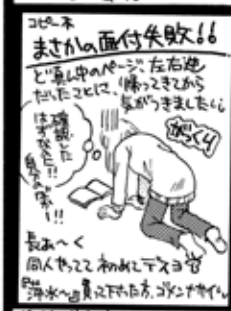 コピー本
まさかの面付失敗!!
ど真ん中のページ、左右逆
だったことに、帰ってきてから
気がつきました
確認した
はずなのに!!
自分のばか!!
がっくり
長あ〜く
同人やってて初めてデスヨ
買って下さった方、ゴメンナサイ